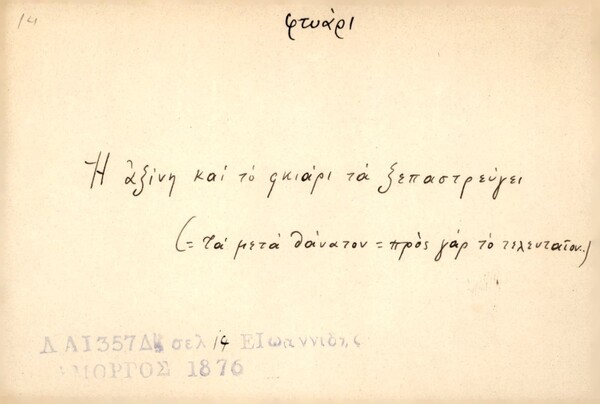 14
φτυάρι
Ἡ ἀξίνη καί τό φκιάρι τά ξεπαστρεύγει
(= τά μετά θάνατον = πρὸς γάρ τό τελευταῖον.)
σελ 14 ΕΙωαννιδης
ΑΜΟΡΓΟΣ 1876